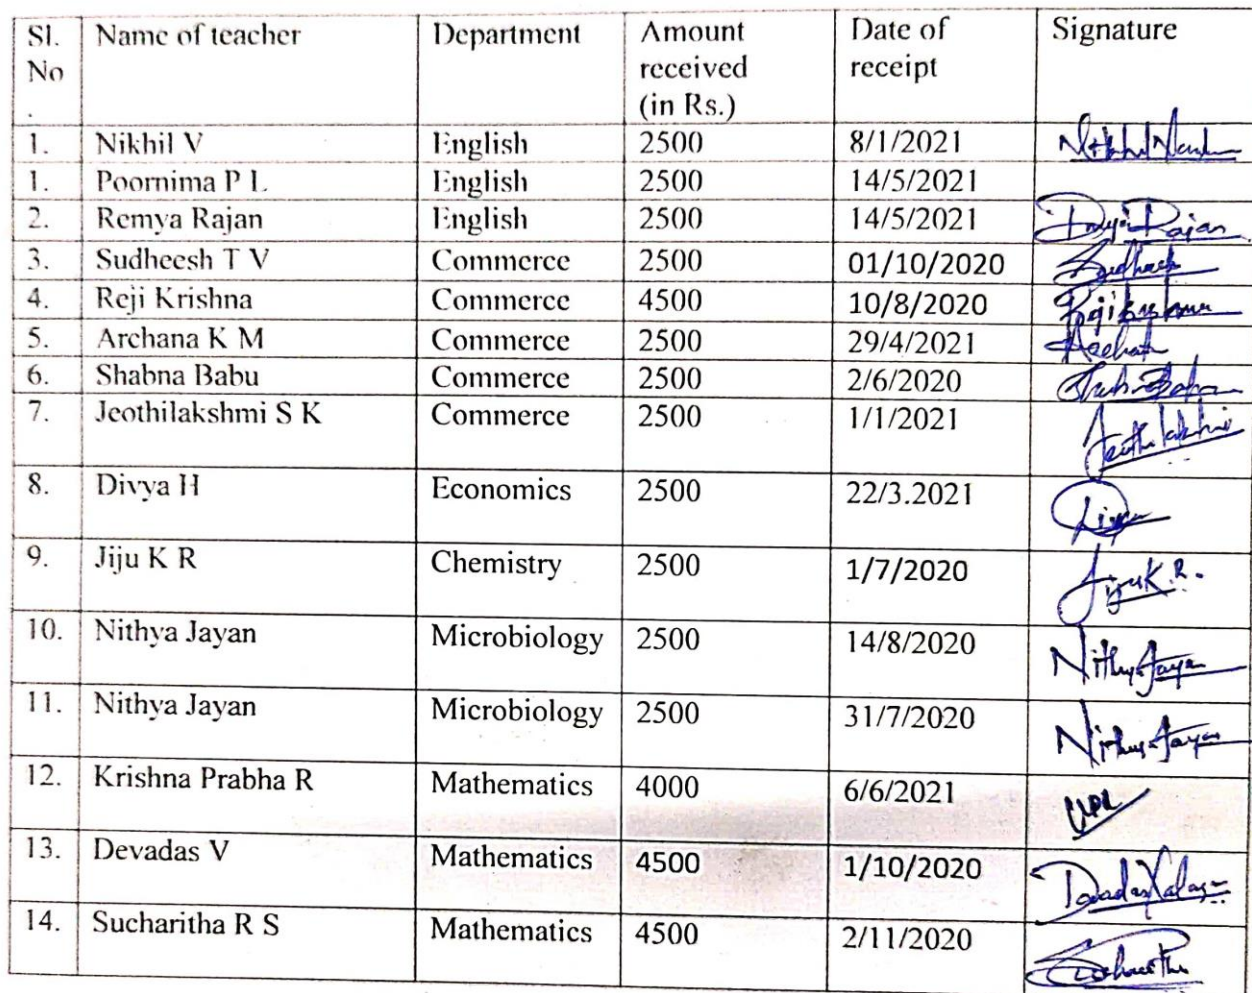 Sl. No . Name of teacher Department Amount received (in Rs.) Date of receipt Signature
1. Nikhil V English 2500 8/1/2021
1. Poornima P L English 2500 14/5/2021
2. Remya Rajan English 2500 14/5/2021 Rajan
3. Sudheesh T V Commerce 2500 01/10/2020
4. Reji Krishna Commerce 4500 10/8/2020
5. Archana K M Commerce 2500 29/4/2021
6. Shabna Babu Commerce 2500 2/6/2020
7. Jeothilakshmi S K Commerce 2500 1/1/2021
8. Divya H Economics 2500 22/3.2021
9. Jiju K R Chemistry 2500 1/7/2020 Jiju K.R.
10. Nithya Jayan Microbiology 2500 14/8/2020
11. Nithya Jayan Microbiology 2500 31/7/2020
12. Krishna Prabha R Mathematics 4000 6/6/2021
13. Devadas V Mathematics 4500 1/10/2020
14. Sucharitha R S Mathematics 4500 2/11/2020